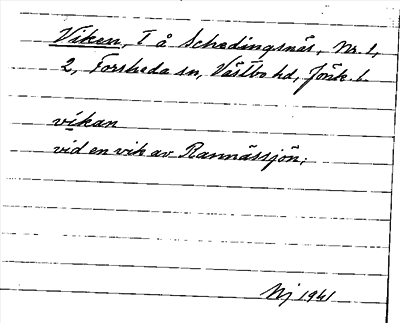 Viken, T å Schedingsnäs, Nr. 1,
2, Forsheda sn, Västbo hd, Jönk. l.
víkan
vid en vik av Rannässjön.
Nj 1941